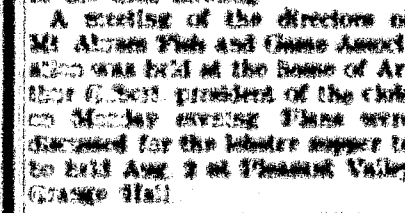 A meeting of the directors of
Mt Abram Fish and Game Associ
ation was held at the home of Ar
thur president of the club
on Monday evening Plans were
discussed for the supper to
be held Aug at Pleasant Valley
Grange Hall